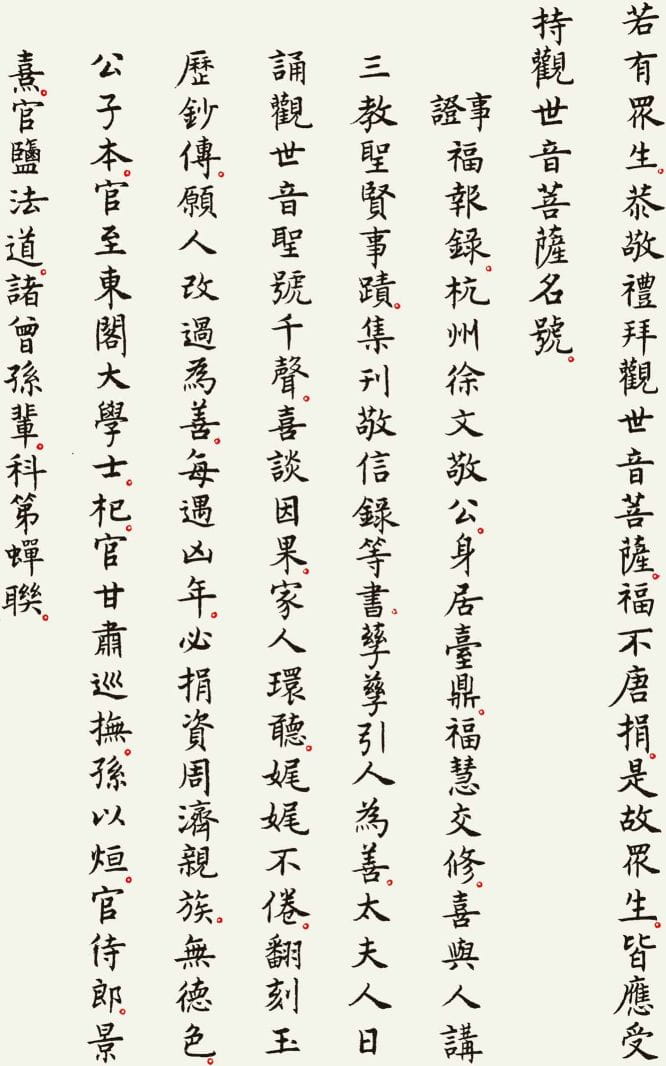 若有眾生。恭敬禮拜觀世音菩薩。福不唐捐。是故眾生。皆應受
持觀世音菩薩名號。
事證 福報錄。杭州徐文敬公。身居臺鼎。福慧交修。喜與人講
三教聖賢事蹟。集刊敬信錄等書。孳孳引人為善。太夫人日
誦觀世音聖號千聲。喜談因果。家人環聽。娓娓不倦。翻刻玉
歷鈔傳。願人改過為善。每遇凶年。必捐資周濟親族。無德色。
公子本。官至東閣大學士。杞。官甘肅巡撫。孫以烜。官侍郎。景
熹。官鹽法道。諸曾孫輩。科第蟬聯。